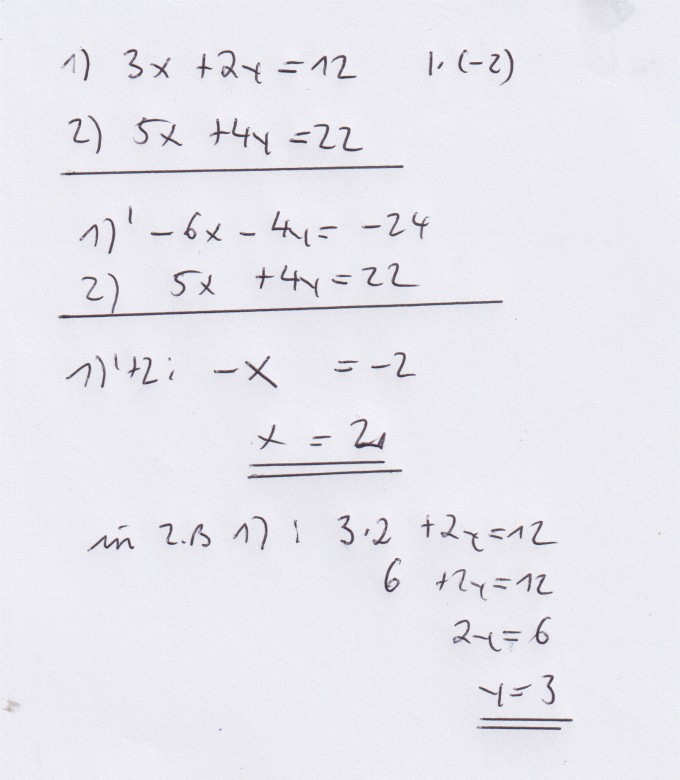 1) 3x +2y =12 |· (-2)
2) 5x +4y =22
1)' -6x - 4y = -24
2) 5x +4y =22
1)'+2: -x = -2
x = 2
in z.B 1) : 3·2 +2y=12
6 +2y=12
2y= 6
y= 3